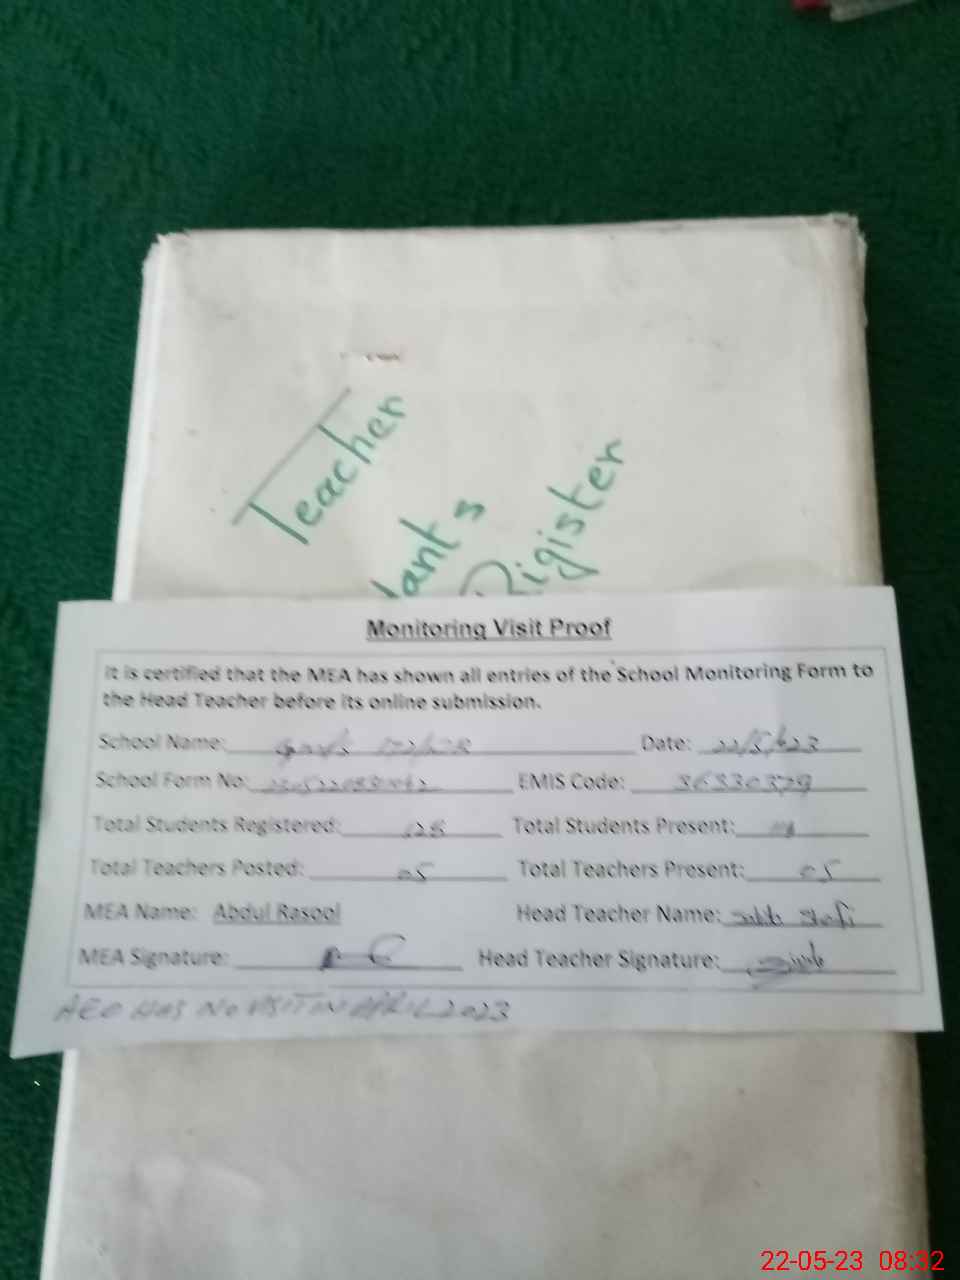 Teacher
Rigister
Monitoring Visit Proof
It is certified that the MEA has shown all entries of the School Monitoring Form to
the Head Teacher before its online submission.
School Name: Date: 22/5/23
School Form No: EMIS Code: 36330379
Total Students Registered: Total Students Present:
Total Teachers Posted: 05 Total Teachers Present: 05
MEA Name: Abdul Rasool Head Teacher Name:
MEA Signature: Head Teacher Signature:
AEO HAS NO VISIT IN APRIL 2023
22-05-23 08:32